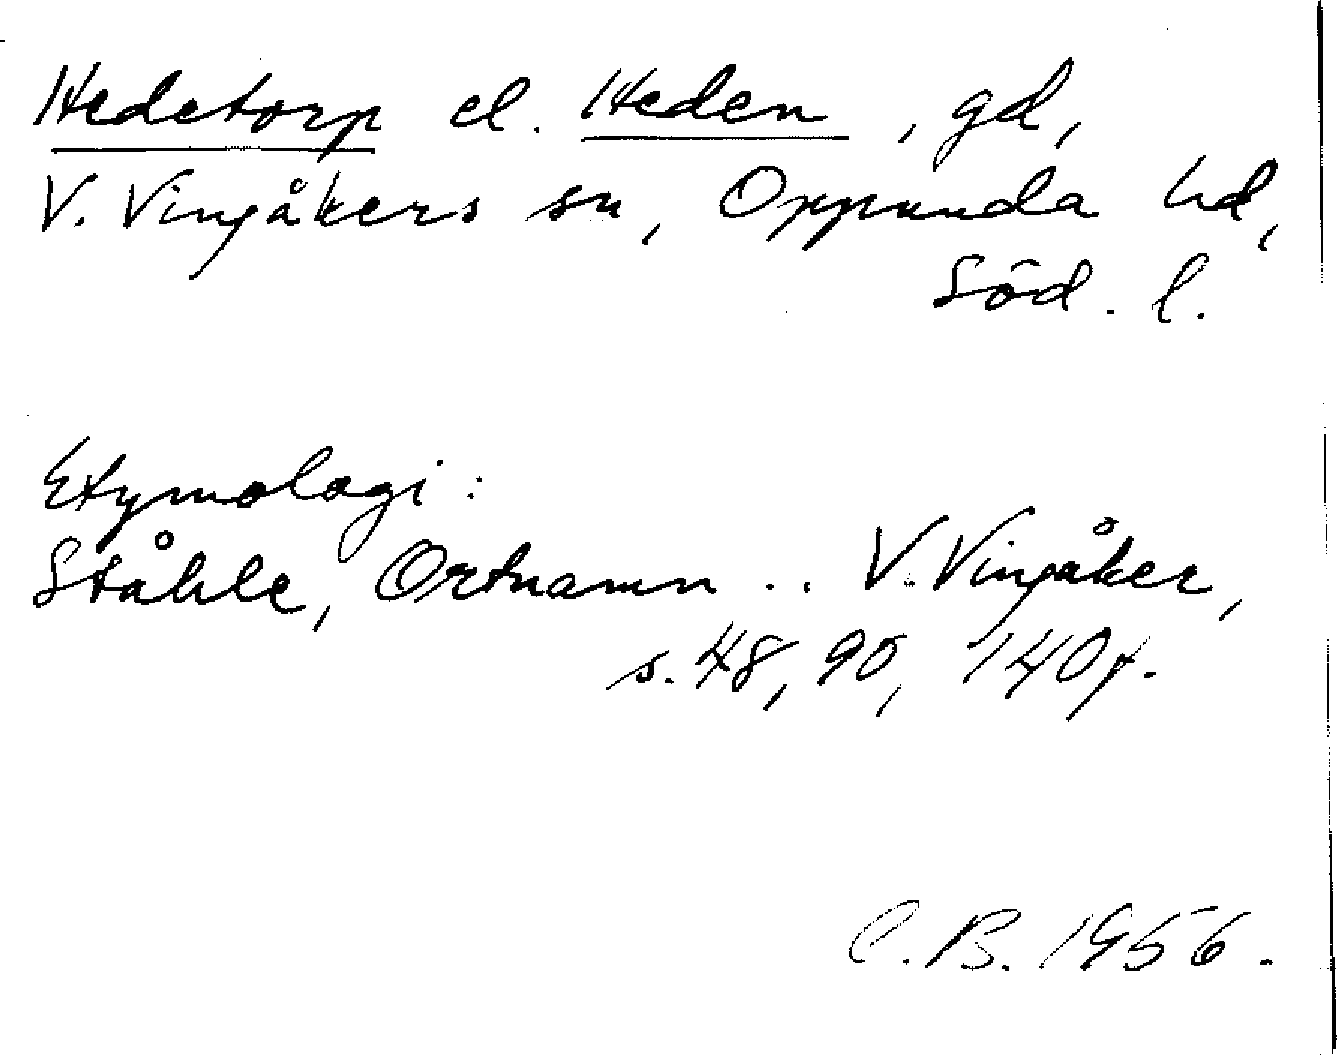 Hedetorp el. Heden, gd,
V. Vingåkers sn, Oppunda hd,
Söd. l.
Etymologi:
Ståhle, Ortnamn .. V. Vingåker,
s. 48, 90, 140f.
C.B. 1956.